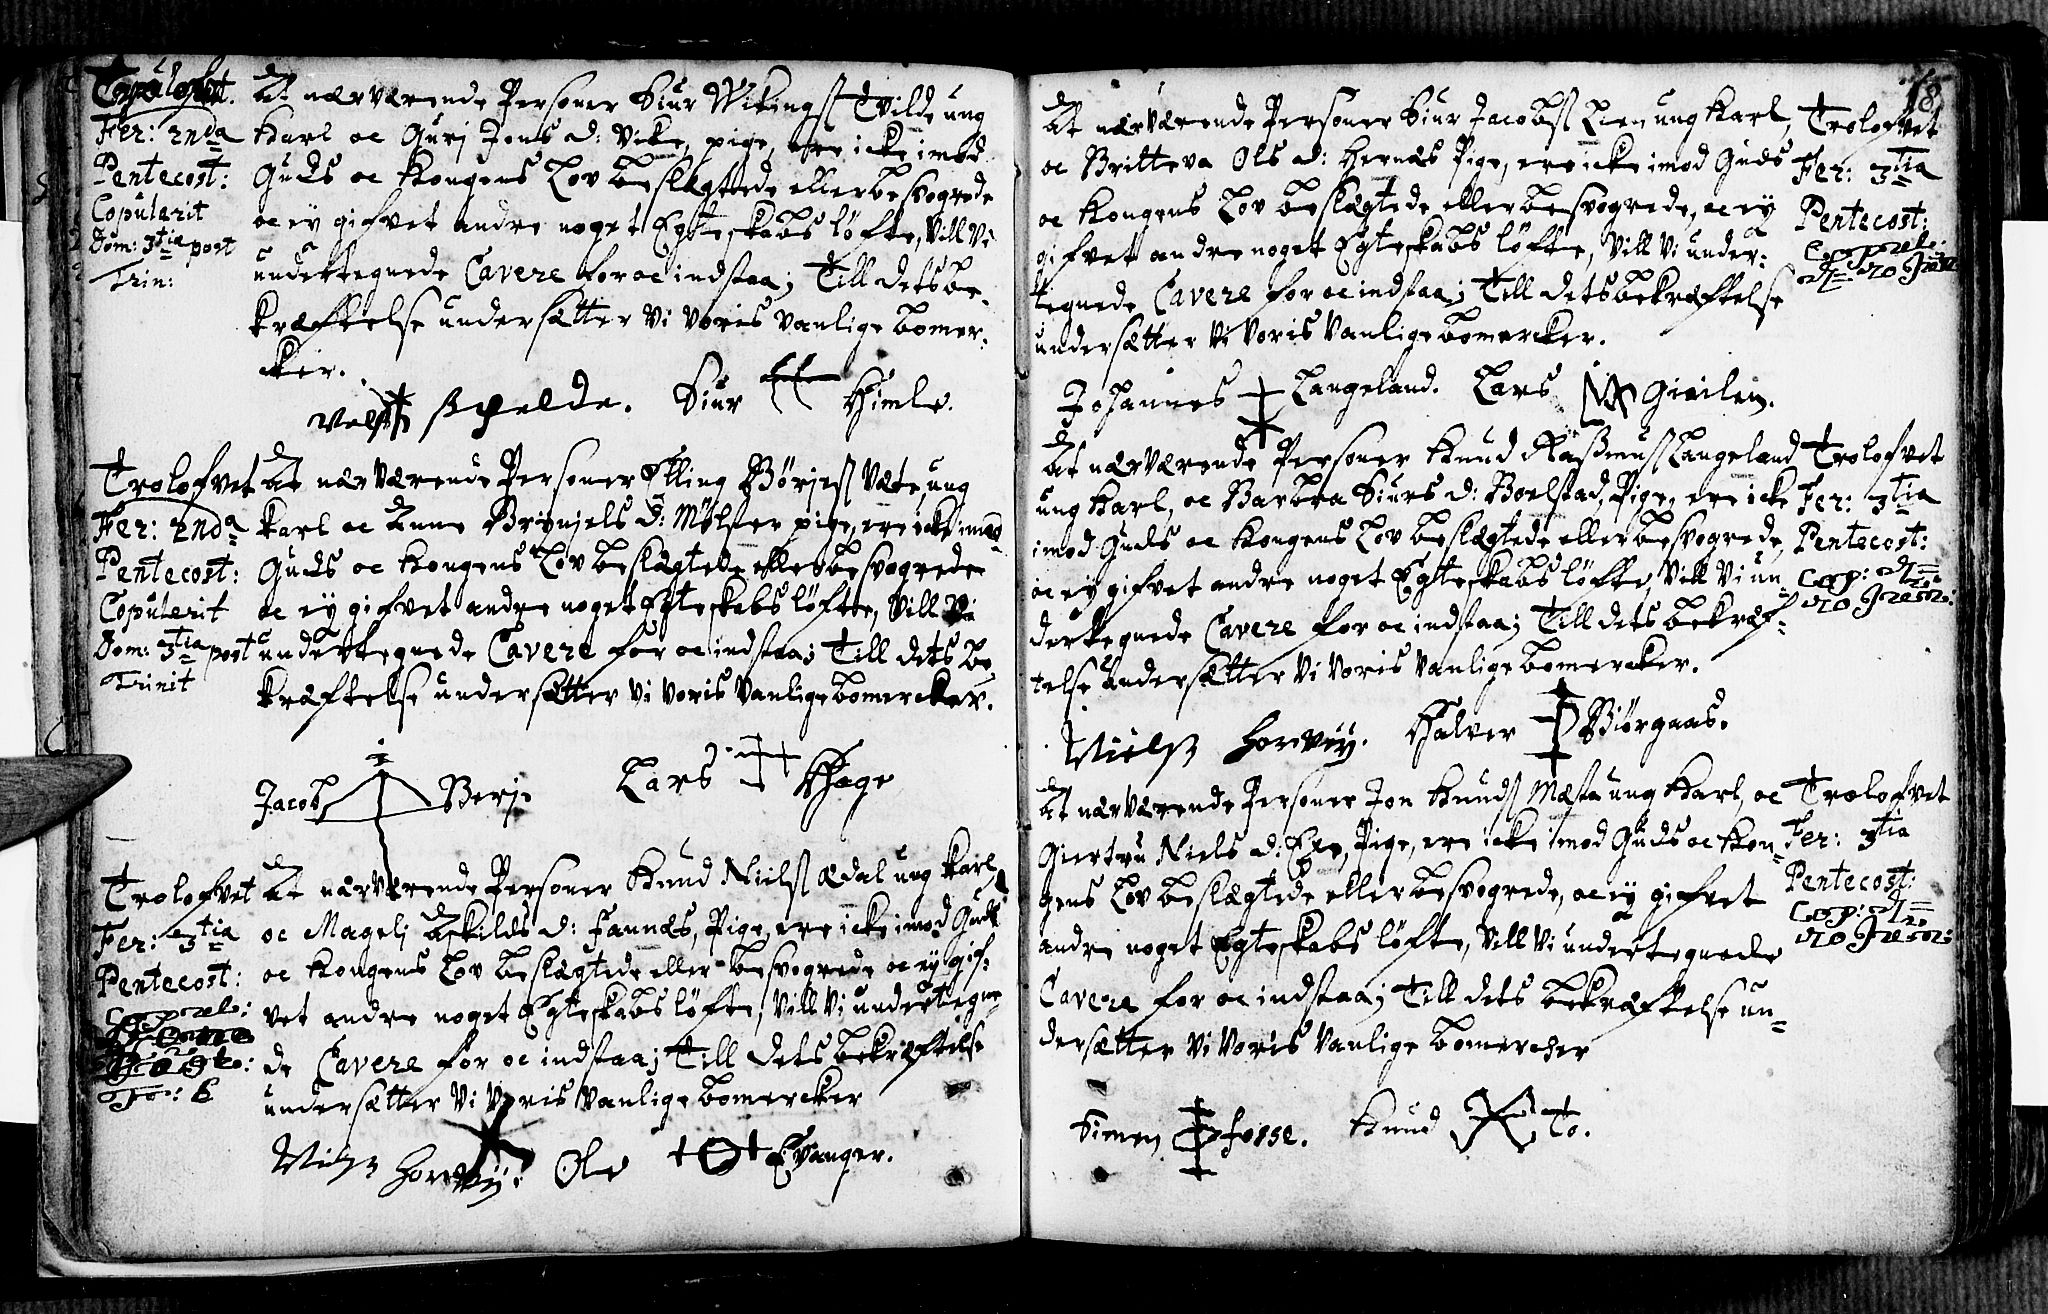 Fer: 2nda
Pentecost:
Copulerit
Dom: 3tia post
Trin:
At nærværende Personer Siur Wikings Tvilde ung
Karl oc Guri Jons d: Vike, pige, ere icke imod
Guds oc Kongens Lov beslægtede eller besvogrede
oc ey gifvet andre noget Egteskabs løfte, Vill Vi
undertegnede Cavere for oc indstaa; Till dets be-
kræftelse undersætter Vi Voris Vanlige bomer-
cker.
Siur Himle.
Trolofvet
Fer: 2nda
Pentecost:
Copulerit
Dom: 3tia post
Trinit
At nærværende Personer Elling Børjes Væte, ung
karl oc Anne Brynjels d: Mølster pige, ere icke imod
Guds oc Kongens Lov beslægtede eller besvogrede
oc ey gifvet andre noget Egteskabs løfte, Vill Vi
undertegnede Cavere for oc indstaa; Till dets be
kræftelse undersætter Vi Voris Vanlige bomercker.
Jacob Berje Lars Hage
Trolofvet
Fer: 3tia
Pentecost:
Copul:
At nærværende Personer Knud Niels Ædal ung karl,
oc Mageli Askilds d: Fannæs, Pige, ere icke imod Guds
oc Kongens Lov beslægtede eller besvogrede oc ey gif-
vet andre noget Egteskabs løfte, Vill Vi undertegne-
de Cavere for oc indstaa; Till dets bekræftelse
undersætter Vi Voris Vanlige bomercker
Niels Horvey: Ole Evanger.
78
At nærværende Personer Siur Jacobs Lien ung Karl,
oc Britteva Ols d: Hernæs Pige, ere icke imod Guds
oc Kongens Lov beslægtede eller besvogrede, oc ey
gifvet andre noget Egteskabs løfte, Vill Vi under-
tegnede Cavere for oc indstaa; Till dets bekræftelse
undersætter Vi Voris Vanlige bomercker.
Trolofvet
Fer: 3tia
Pentecost:
Copul:
Johannes Langeland. Lars
At nærværende Personer Knud Rasmus Langeland
ung Karl, oc Barbra Siurs d: Bolstad, Pige, ere icke
imod Guds oc Kongens Lov beslægtede eller besvogrede,
oc ey gifvet andre noget Egteskabs løfte, Vill Vi un-
dertegnede Cavere for oc indstaa; Till dets bekræf-
telse undersætter Vi Voris Vanlige bomercker.
Trolofvet
Fer: 3tia
Pentecost:
Cop:
Niels Horvey. Halver Biørgaas.
At nærværende Personer Jon Knuds Mæsta ung Karl, oc
Giertru Niels d: Exe, Pige, ere icke imod Guds oc Kon-
gens Lov beslægtede eller besvogrede, oc ey gifvet
andre noget Egteskabs løfte, Vill Vi undertegnede
Cavere for oc indstaa; Till dets bekræftelse un-
dersætter Vi Voris Vanlige bomercker
Trolofvet
Fer: 3tia
Pentecost:
Cop:
Simen Fosse. Knud Tø.